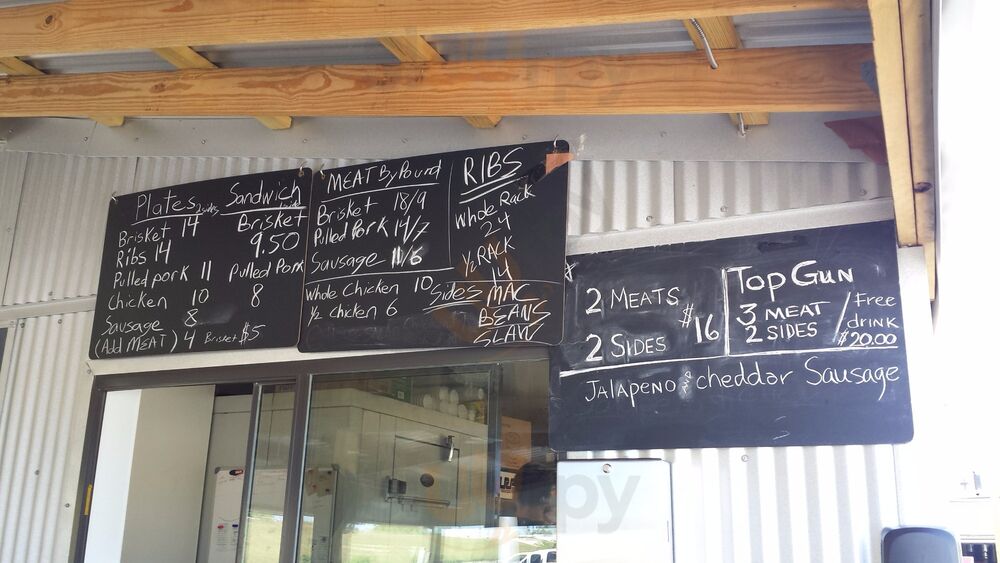 Plates 2 sides
Brisket 14
Ribs 14
Pulled pork 11
Chicken 10
Sausage 8
(Add MEAT) 4 Brisket $5
Sandwich
Brisket
9.50
Pulled Pork
8
MEAT By Pound
Brisket 18/9
Pulled Pork 14/7
Sausage 11/6
Whole Chicken 10
1/2 chicken 6
RIBS
Whole Rack
24
1/2 RACK
14
Sides MAC
BEANS
SLAW
2 MEATS
2 SIDES
$16
TOP GUN
3 MEAT
2 SIDES
Free
drink
$20.00
JALAPENO & cheddar Sausage